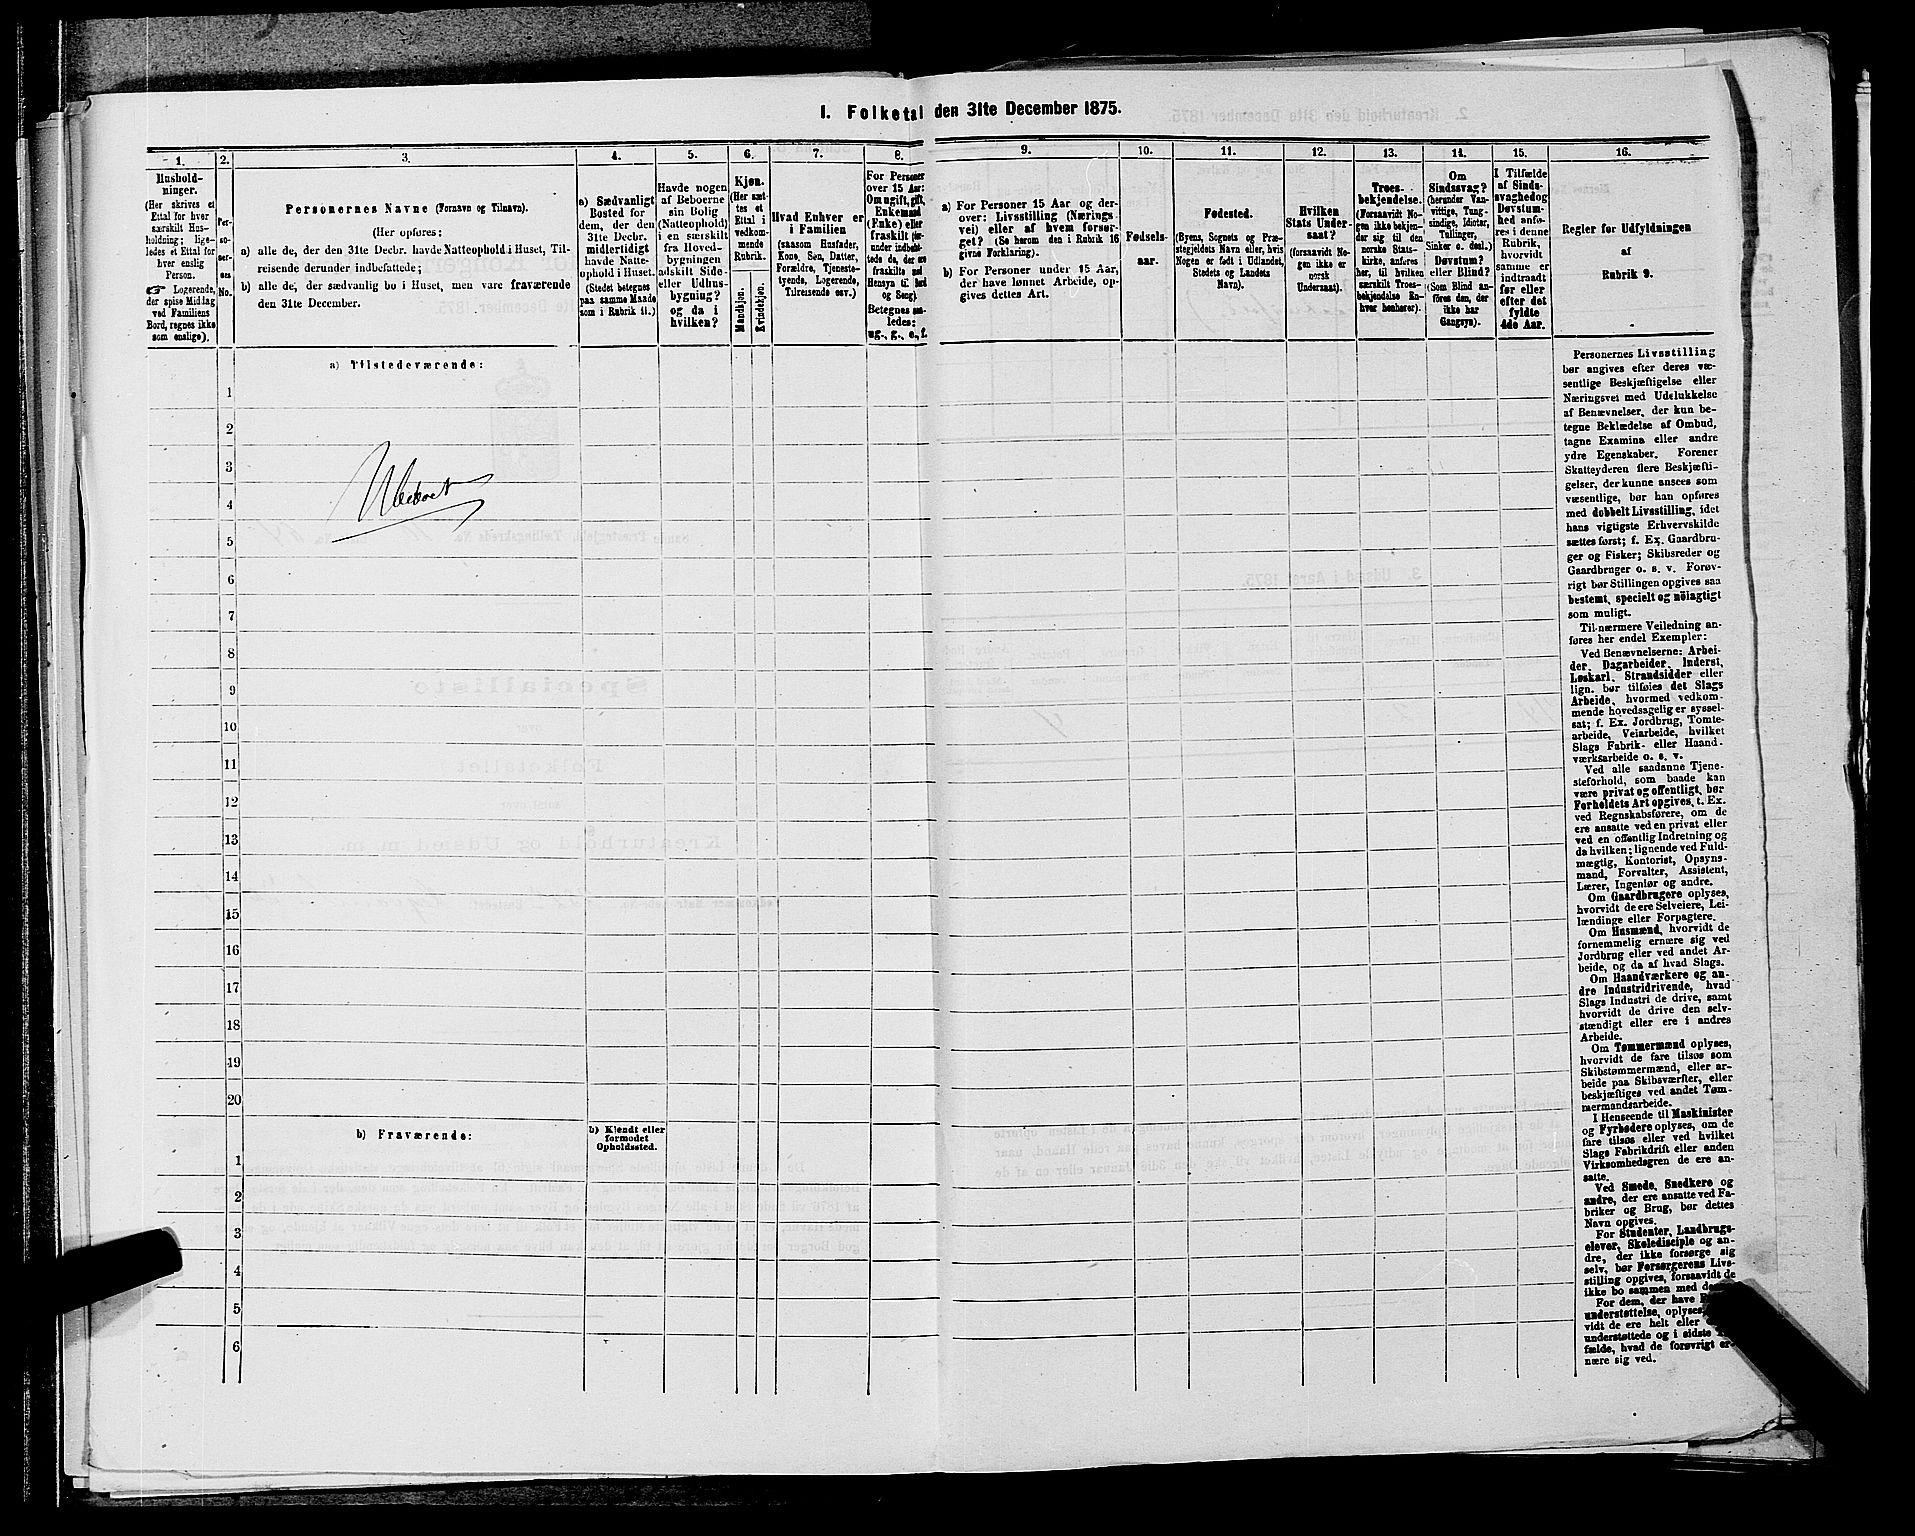 1. Folketal den 31te December 1875.
1.
Hushold-
ninger.
(Her skrives et
Ettal for hver
særskilt Hus-
holdning; lige-
ledes et Ettal for
hver enslig
Person.
☞ Logerende,
der spise Middag
ved Familiens
Bord, regnes ikke
som enslige).
2.
Per-
so-
ner-
nes
No.
3.
Personernes Navne (Fornavn og Tilnavn).
(Her opføres:
a) alle de, der den 31te Decbr. havde Natteophold i Huset, Til-
reisende derunder indbefattede;
b) alle de, der sædvanlig bo i Huset, men vare fraværende
den 31te December.
4.
a) Sædvanligt
Bosted for
dem, der den
31te Decbr.
midlertidigt
havde Natte-
ophold i Huset.
(Stedet betegnes
paa samme Maade
som i Rubrik 11.)
5.
Havde nogen
af Beboerne
sin Bolig
(Natteophold)
i en særskilt
fra Hoved-
bygningen
adskilt Side-
eller Udhus-
bygning?
og da i
hvilken?
6.
Kjøn.
(Her sæt-
tes et
Ettal i
vedkom-
mende
Rubrik.
Mandkjøn.
Kvindekjøn.
7.
Hvad Enhver er
i Familien
(saasom Husfader,
Kone, Søn, Datter,
Forældre, Tjeneste-
tyende, Logerende,
Tilreisende osv.)
8.
For Personer
over 15 Aar:
Om ugift, gift,
Enkemand
(Enke) eller
fraskilt
Betegnes saa-
ledes:
ug., g., e., f.
9.
a) For Personer 15 Aar og der-
over: Livsstilling (Nærings-
vei) eller af hvem forsør-
get? (Se herom den i Rubrik 16
givne Forklaring).
b) For Personer under 15 Aar,
der have lønnet Arbeide, op-
gives dettes Art.
10.
Fødsels-
aar.
11.
Fødested.
(Byens, Sognets og Præ-
stegjeldets Navn eller, hvis
Nogen er født i Udlandet,
Stedets og Landets
Navn).
12.
Hvilken
Stats Under-
saat?
(forsaavidt No-
gen ikke er
norsk
Undersaat).
13.
Troes-
bekjendelse.
(Forsaavidt No-
gen ikke bekjen-
der sig til den
norske Stats-
kirke, anføres
her, til hvilken
særskilt Troes-
bekjendelse En-
hver henhører).
14.
Om
Sindssvag?
(herunder Van-
vittige, Tung-
sindige, Idioter,
Tullinger,
Sinker o. desl.)
Døvstum?
eller Blind?
(Som Blind an-
føres den, der
ikke har
Gangsyn).
15.
I Tilfælde
af Sinds-
svaghed og
Døvstum-
hed anfø-
res i denne
Rubrik,
hvorvidt
samme er
indtraadt
før eller
efter det
fyldte
4de Aar.
16.
Regler for Udfyldningen
af
Rubrik 9.
a) Tilstedeværende:
1
2
3
4
5
6
7
8
9
10
11
12
13
14
15
16
17
18
19
20
b) Fraværende:
b) Kjendt eller
formodet
Opholdssted.
1
2
3
4
5
6
Ubeboet
Personernes Livsstilling
bør angives efter deres væ-
sentlige Beskjæftigelse eller
Næringsvei med Udelukkelse
af Benævnelser, der kun be-
tegne Beklædelse af Ombud,
tagne Examina eller andre
ydre Egenskaber. Forener
Skatteyderen flere Beskjæfti-
gelser, der kunne ansees som
væsentlige, bør han opføres
med dobbelt Livsstilling, idet
hans vigtigste Erhvervskilde
sættes først; f. Ex. Gaardbru-
ger og Fisker; Skibsreder og
Gaardbruger o. s. v. Forøv-
rigt bør Stillingen opgives saa
bestemt, specielt og nøiagtigt
som muligt.
Til nærmere Veiledning an-
føres her endel Exempler:
Ved Benævnelserne: Arbei-
der, Dagarbeider, Inderst,
Løskarl, Strandsidder eller
lign. bør tilføies det Slags
Arbeide, hvormed vedkom-
mende hovedsagelig er syssel-
sat; f. Ex. Jordbrug, Tomte-
arbeide, Veiarbeide, hvilket
Slags Fabrik- eller Haand-
værksarbeide o. s. v.
Ved alle saadanne Tjene-
steforhold, som baade kan
være privat og offentligt, bør
Forholdets Art opgives, t. Ex.
ved Regnskabsførere, om de
ere ansatte ved en privat eller
ved en offentlig Indretning og
da hvilken; lignende ved Fuld-
mægtig, Kontorist, Opsyns-
mand, Forvalter, Assistent,
Lærer, Ingeniør og andre.
Om Gaardbrugere oplyses,
hvorvidt de ere Selveiere, Lei-
lændinge eller Forpagtere.
Om Husmænd, hvorvidt de
fornemmelig ernære sig ved
Jordbrug eller ved andet Ar-
beide, og da af hvad Slags.
Om Haandværkere og an-
dre Industridrivende, hvad
Slags Industri de drive, samt
hvorvidt de drive den selv-
stændigt eller ere i andres
Arbeide.
Om Tømmermænd oplyses,
hvorvidt de fare tilsøs som
Skibstømmermænd, eller ar-
beide paa Skibsværfter, eller
beskjæftiges ved andet Tøm-
mermandsarbeide.
I Henseende til Maskinister
og Fyrbødere oplyses, om de
fare tilsøs eller ved hvilket
Slags Fabrikdrift eller anden
Virksomhedsgren de ere an-
satte.
Ved Smede, Snedkere og
andre, der ere ansatte ved Fa-
briker og Brug, bør dettes
Navn opgives.
For Studenter, Landbrugs-
elever, Skoledisciple og an-
dre, der ikke forsørge sig
selv, bør Forsørgerens Livs-
stilling opgives, forsaavidt de
ikke bo sammen med
For dem, der have
understøttelse, oplyses,
vidt de ere helt eller
understøttede og i sidste
fælde, hvad de forøvrigt er-
nære sig ved.